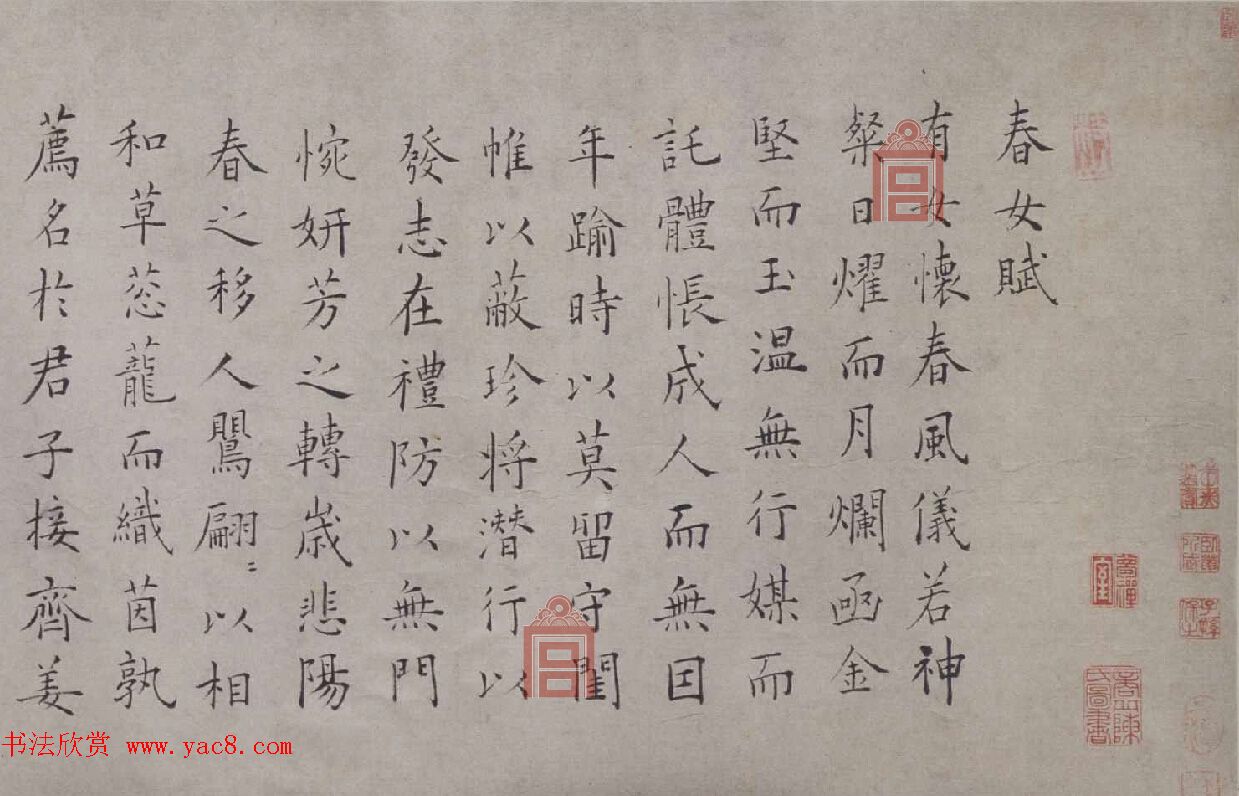 春女賦
有女懷春風儀若神
粲日耀而月爛函金
堅而玉溫無行媒而
託體悵成人而無因
年踰時以莫留守閨
帷以蔽珍將潛行以
發志在禮防以無門
惋妍芳之轉歲悲陽
春之移人鸎翩〻以相
和草蒤蘢而織茵孰
薦名於君子接齊姜
书法欣赏 www.yac8.com